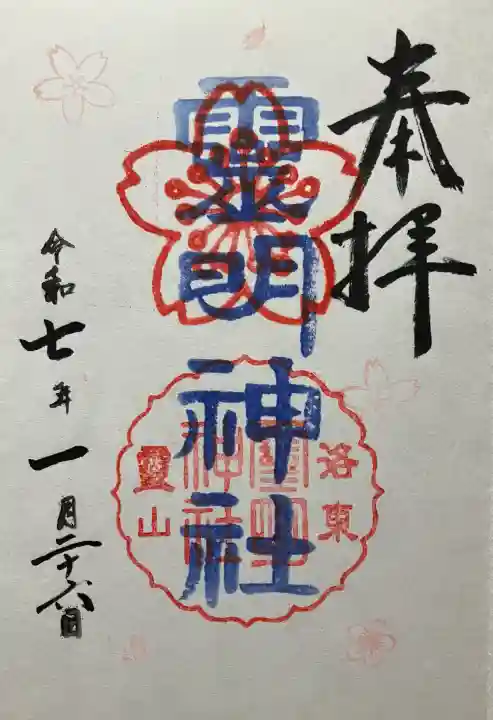 奉拝
霊明神社
洛東
霊明
神社
霊山
令和七年一月二十六日